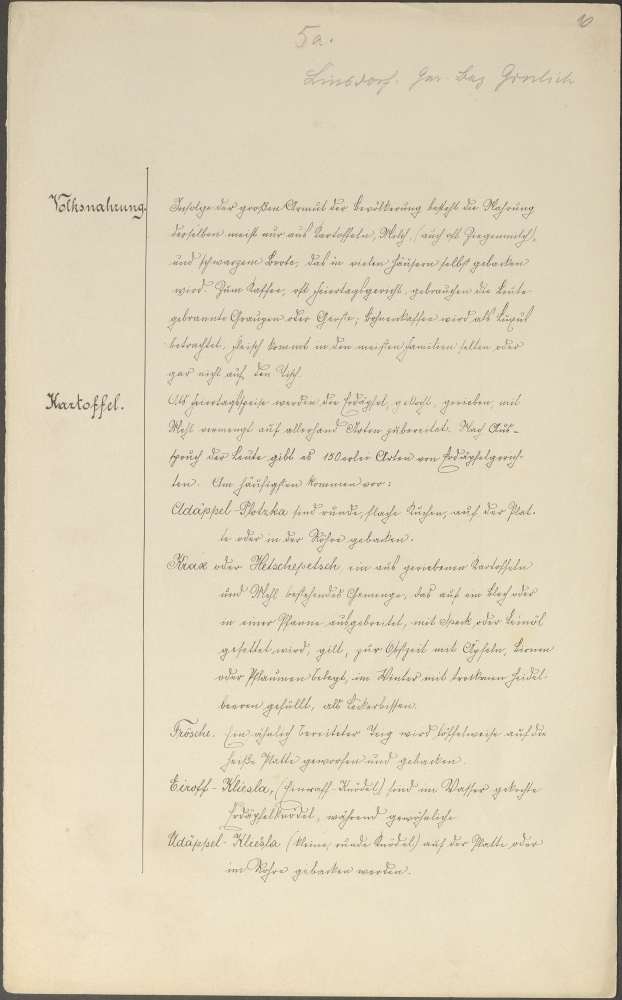 10
5a.
Linsdorf. Ger. Bez Grulich
Volksnahrung.
Infolge der großen Armut der Bevölkerung besteht die Nahrung
derselben meist nur aus Kartoffeln, Milch, (auch oft Ziegenmilch),
und schwarzem Brote, das in vielen Häusern selbst gebacken
wird. Zum Kaffee, oft Feiertagsgericht, gebrauchen die Leute
gebrannte Graupen oder Gerste; Bohnenkaffee wird als Luxus
betrachtet. Fleisch kommt in den meisten Familien selten oder
gar nicht auf den Tisch.
Kartoffel.
Als Feiertagsspeise werden die Erdäpfel, gekocht, gerieben, mit
Mehl vermengt auf allerhand Arten zubereitet. Nach Aus-
spruch der Leute gibt es 150erlei Arten von Erdäpfelgerich-
ten. Am häufigsten kommen vor:
Adäppel-Plotzka sind runde, flache Kuchen, auf der Plat-
te oder in der Röhre gebacken.
Krax oder Hetschepetsch ein aus geriebenen Kartoffeln
und Mehl bestehendes Gemenge, das auf ein Blech oder
in einer Pfanne ausgebreitet, mit Speck oder Leinöl
gefettet wird, gilt, zur Obstzeit mit Äpfeln, Birnen
oder Pflaumen belegt, im Winter mit trockenen Heidel-
beeren gefüllt, als Leckerbissen.
Frösche. Ein ähnlich bereiteter Teig wird löffelweise auf die
heiße Platte geworfen und gebacken.
Eiroff-Kliesla, (Einraff-Knödel) sind im Wasser gekochte
Erdäpfelknödel, während gewöhnliche
Adäppel-Kliesla (kleine, runde Knödel) auf der Platte oder
im Rohre gebacken werden.